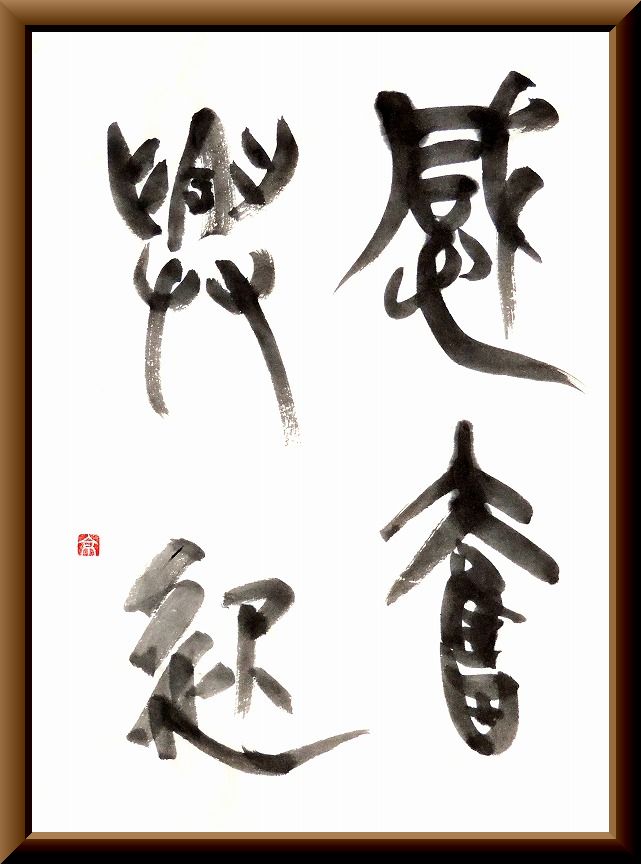 感奮
興起